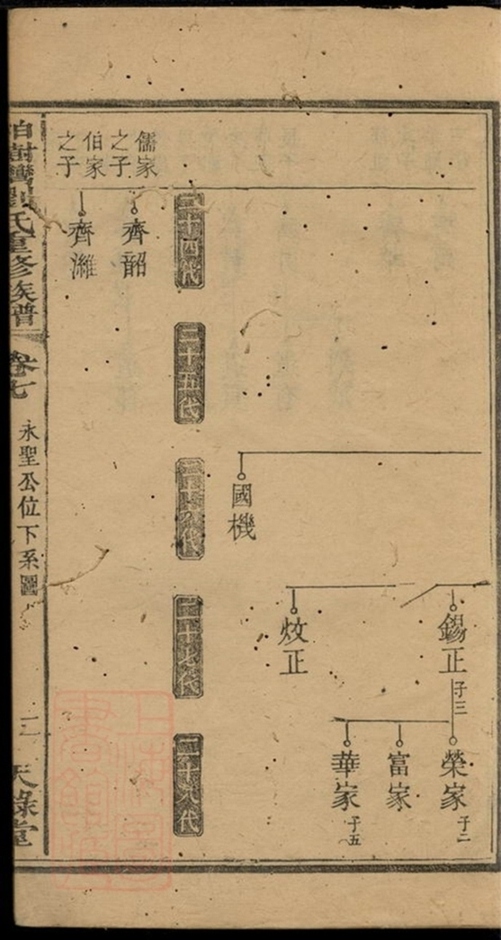 錫正
子三
榮家
子二
富家
華家
子五
炆正
國機
二十四代
二十五代
二十六代
二十七代
二十八代
儒家
之子
齊韶
伯家
之子
齊濰
柏樹灣劉氏重修族譜
卷七
永聖公位下系圖
天祿堂